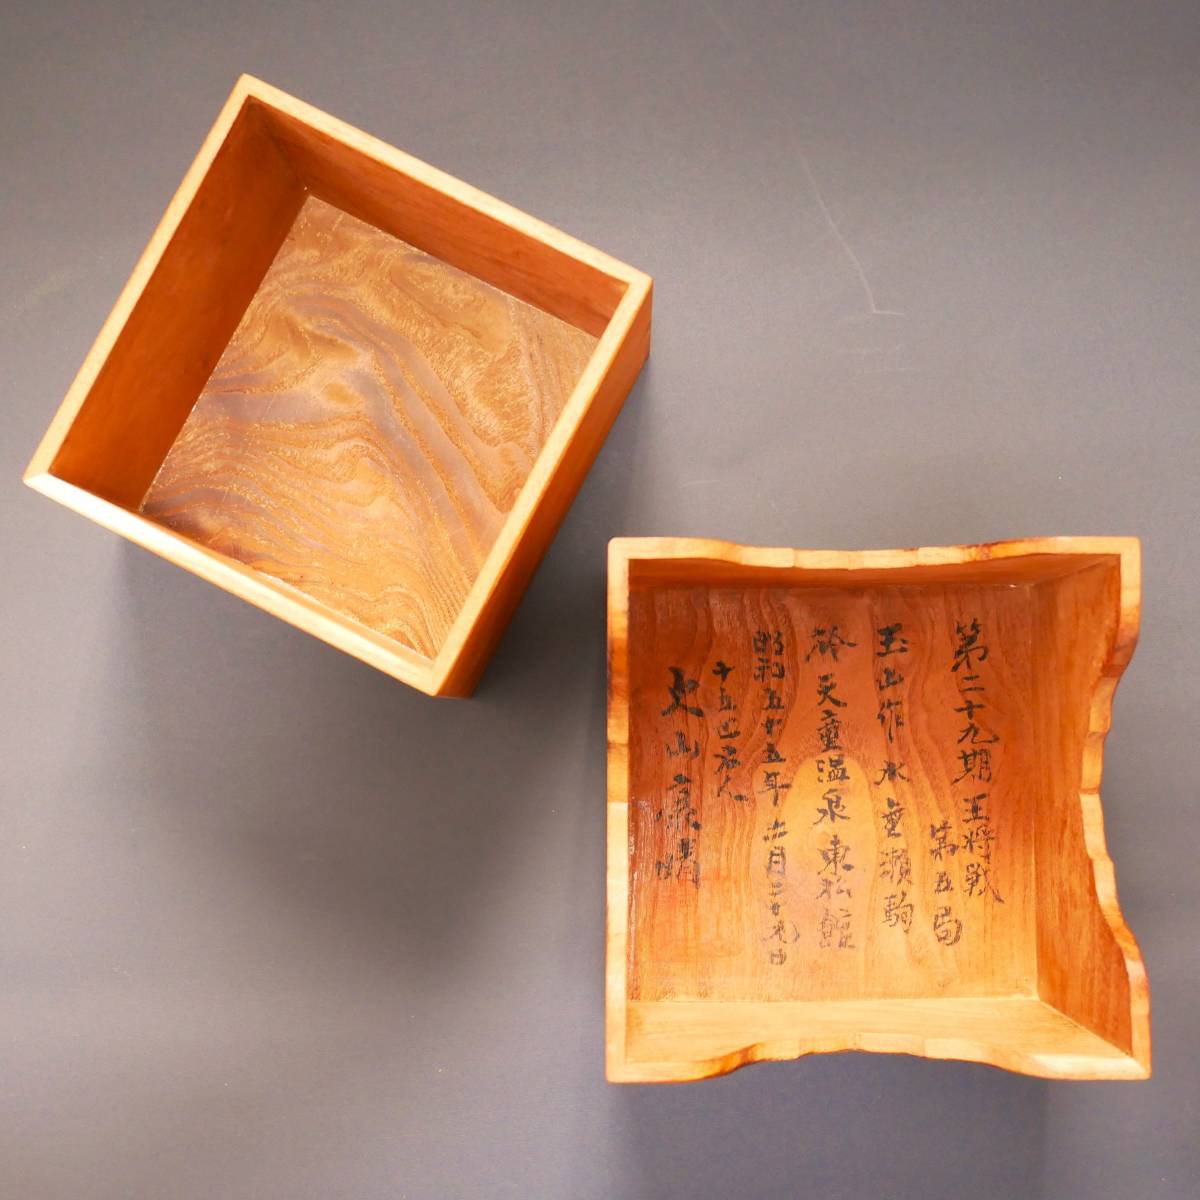 第二十九期王将戦
第五局
玉山作 水無瀬駒
於 天童温泉東松館
昭和五十五年 六月二十九日
十五世名人
大山康晴